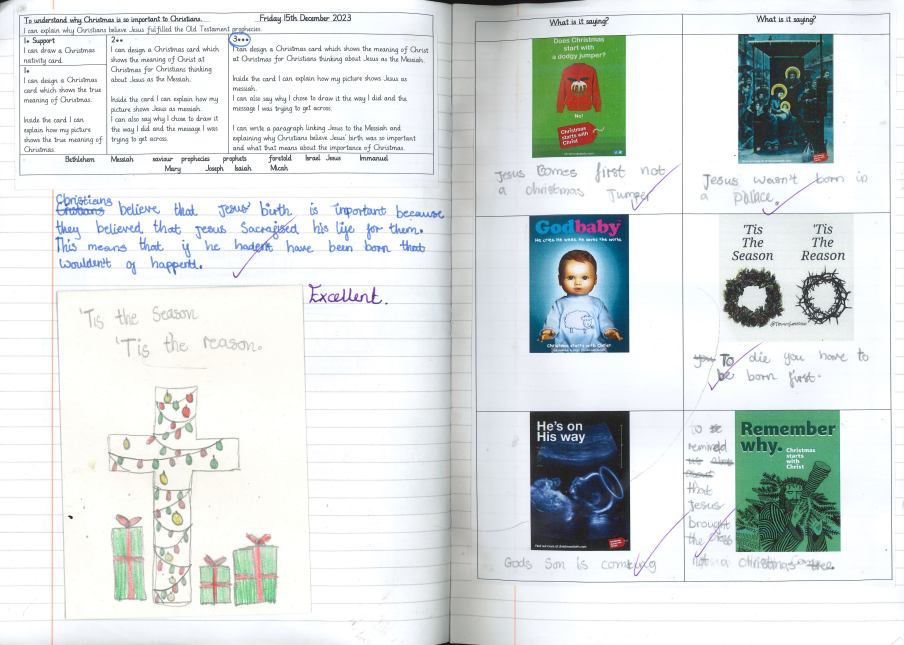 To understand why Christmas is so important to Christians. Friday 15th December 2023
I can explain why Christians believe Jesus fulfilled the Old Testament prophecies.
1★ Support
I can draw a Christmas
nativity card.
1★
I can design a Christmas
card which shows the true
meaning of Christmas.
Inside the card I can
explain how my picture
shows the true meaning of
Christmas.
2★★
I can design a Christmas card which
shows the meaning of Christ at
Christmas for Christians thinking
about Jesus as the Messiah.
Inside the card I can explain how my
picture shows Jesus as messiah.
I can also say why I chose to draw it
the way I did and the message I was
trying to get across.
3★★★
I can design a Christmas card which shows the meaning of Christ
at Christmas for Christians thinking about Jesus as the Messiah.
Inside the card I can explain how my picture shows Jesus as
messiah.
I can also say why I chose to draw it the way I did and the
message I was trying to get across.
I can write a paragraph linking Jesus to the Messiah and
explaining why Christians believe Jesus' birth was so important
and what that means about the importance of Christmas.
Bethlehem Messiah saviour prophecies prophets foretold Israel Jesus Immanuel
Mary Joseph Isaiah Micah
Christians
believe that Jesus' birth is important because
they believed that Jesus Sacrafised his life for them.
This means that if he hadent have been born that
wouldn't of happend.
Excellent.
'Tis the Season
'Tis the reason.
What is it saying?
Does Christmas
start with
a dodgy jumper?
No!
Christmas
starts with
Christ
Jesus Comes first not
a christmas Jumper
What is it saying?
Jesus wasn't born in
a Palace.
Godbaby
He cries. He wees. He saves the world.
Christmas starts with Christ
'Tis
The
Season
'Tis
The
Reason
To die you have to
be born first.
He's on
His way
Gods Son is comeing
Remember
why.
Christmas
starts
with
Christ
To
remined
that
Jesus
brought
the
not a christmas tree.